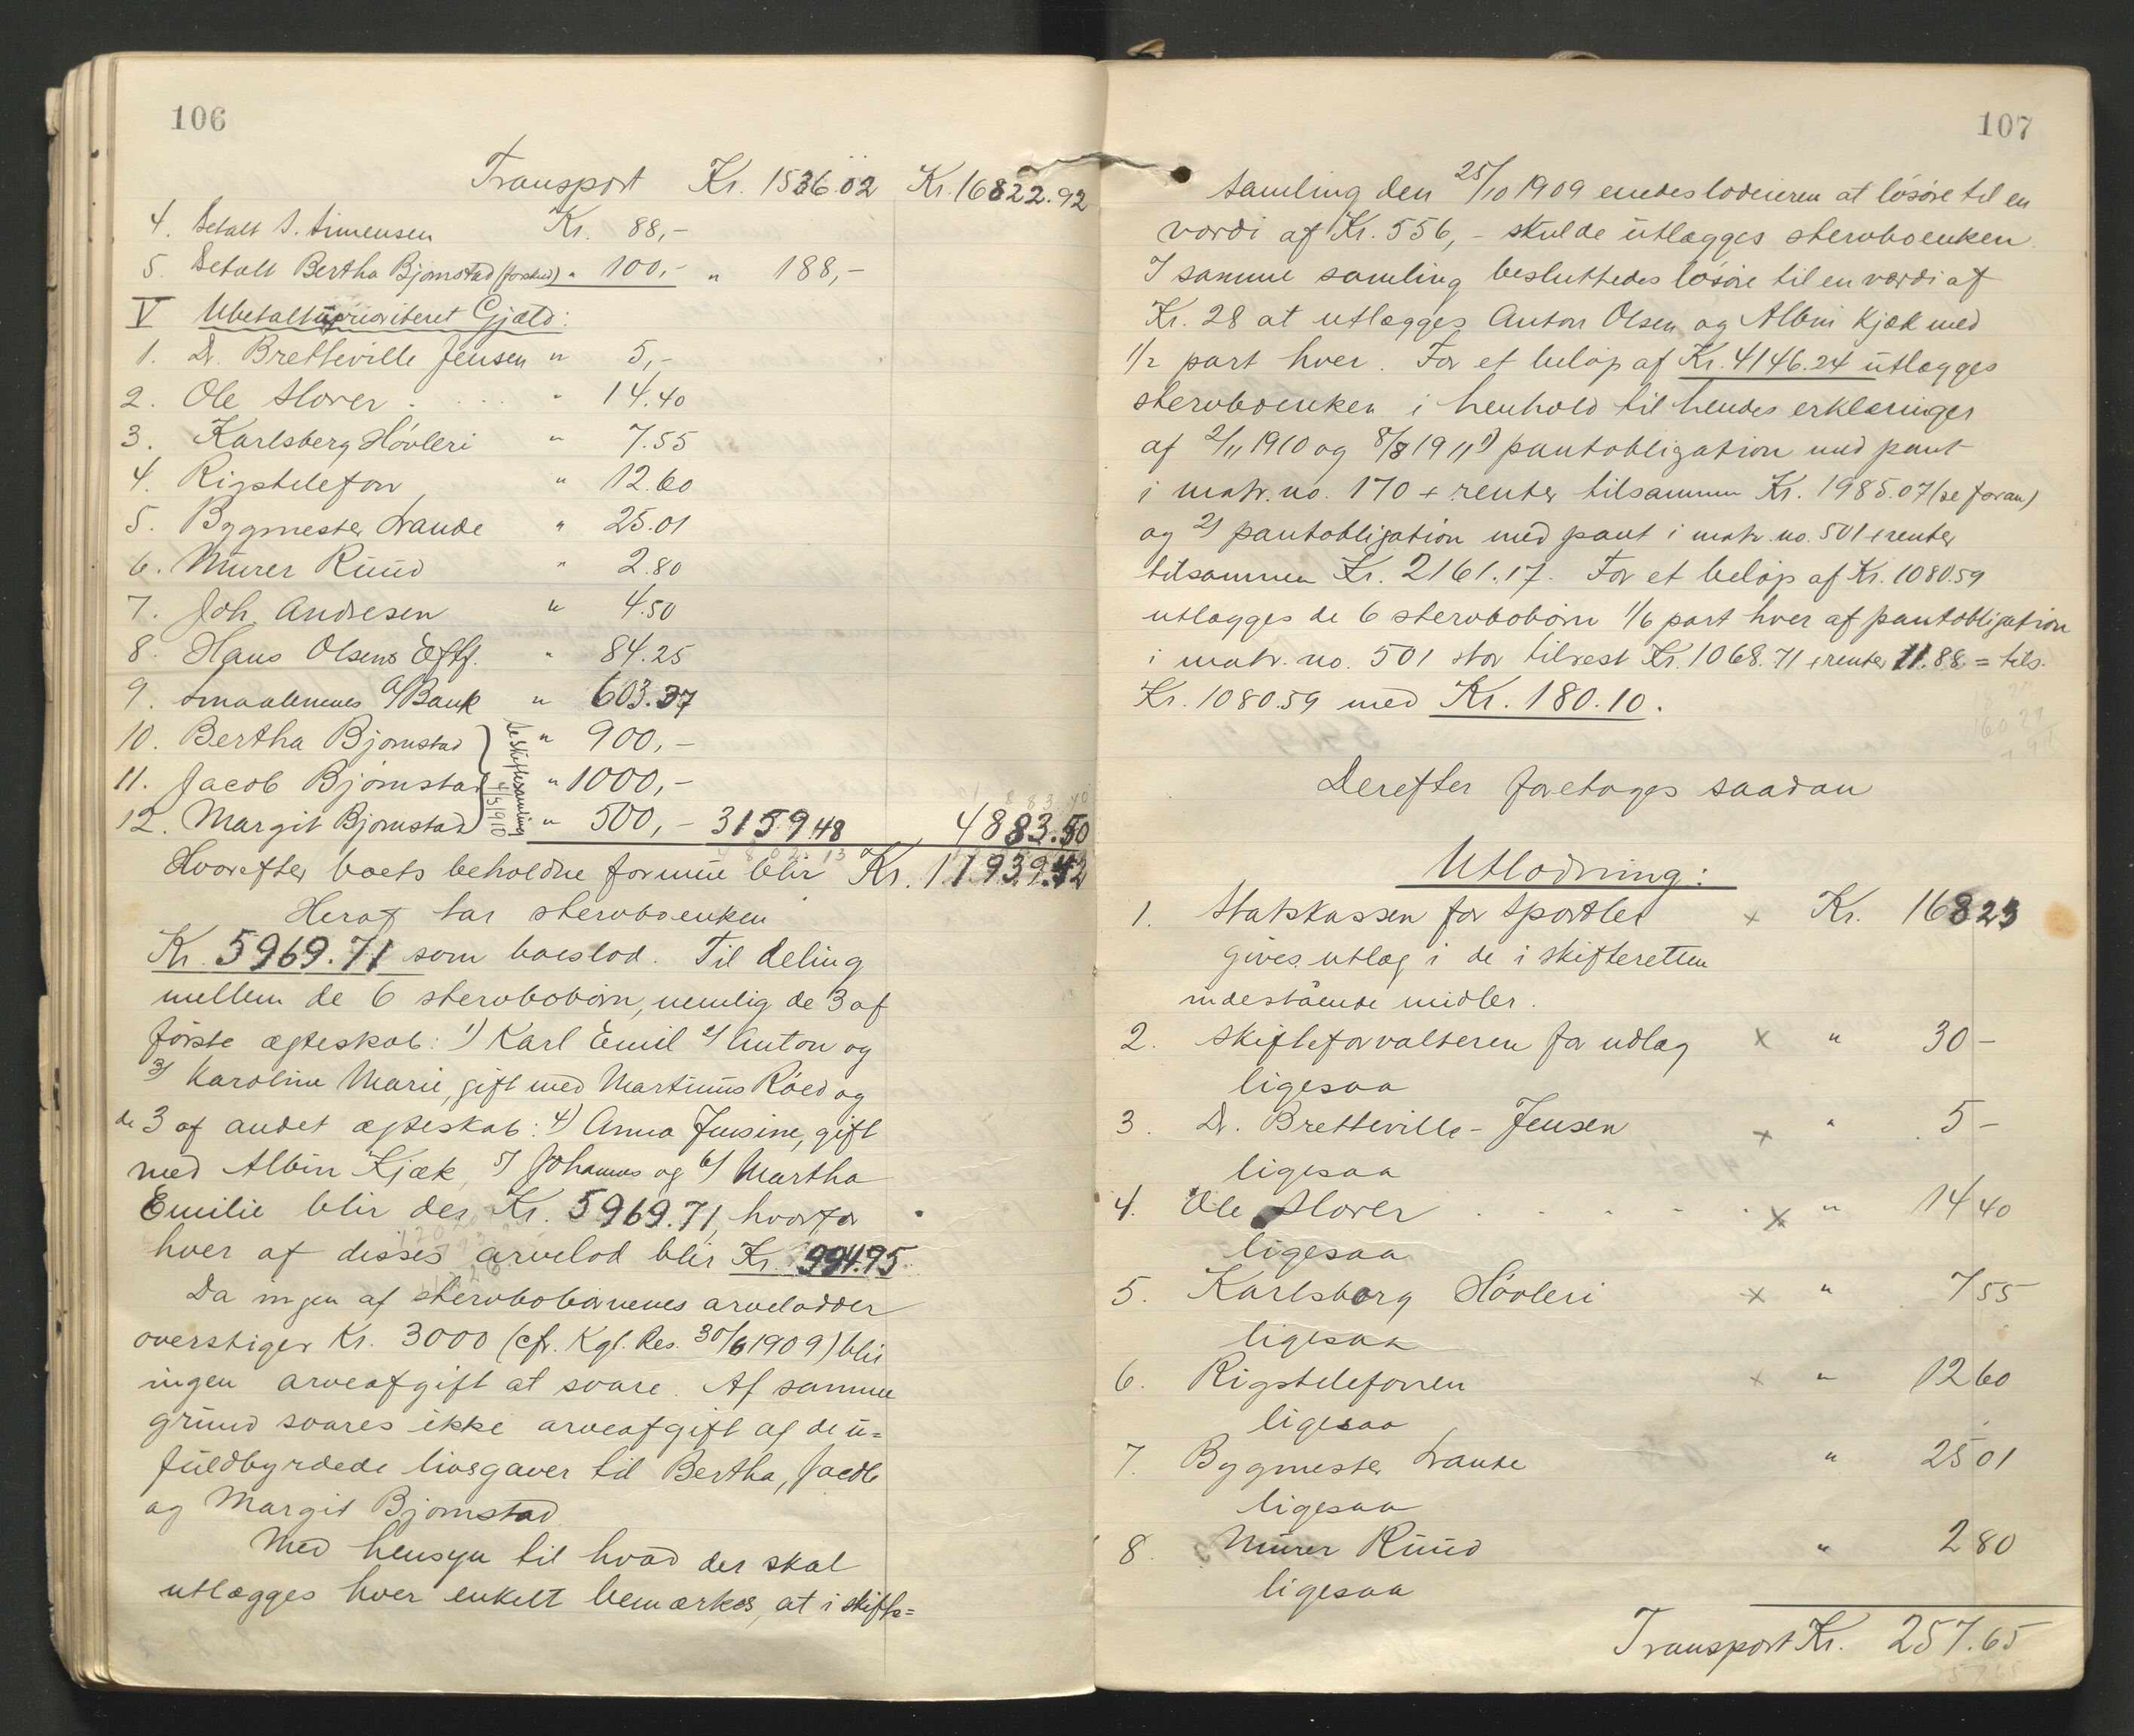 106
Transport Kr. 1536.02 Kr. 16822.92
4. Betalt S. Simensen Kr. 88,-
5. Betalt Bertha Bjørnstad (forskud) " 100,- " 188,-
V Ubetalt uprioriteret Gjæld:
1. Dr. Bretteville Jensen " 5,-
2. Ole Hover . . . . " 14.40
3. Karlsberg Høvleri " 7.55
4. Rigstelefon " 12.60
5. Bygmester Lande " 25.01
6. Murer Ruud " 2.80
7. Joh. Andresen " 4.50
8. Hans Olsens Eftf. " 84.25
9. Smaalenenes A/Bank " 603.37
10. Bertha Bjørnstad " 900,-
11. Jacob Bjørnstad " 1000,-
12. Margit Bjørnstad " 500,- 3159.48 4883.50
se skiftesamling
Hvorefter boets beholdne formue blir Kr. 11939.42
Heraf tar stervboenken
Kr. 5969.71 som boeslod. Til deling
mellem de 6 stervbobørn, nemlig de 3 af
første ægteskab: 1) Karl Emil 2) Anton og
3) Karoline Marie, gift med Martinus Røed og
de 3 af andet ægteskab: 4) Anna Jensine, gift
med Albin Kjæk, 5) Johannes og 6) Martha
Emilie blir der Kr. 5969.71, hvorfor
hver af disses arvelod blir Kr. 994.95.
Da ingen af stervbobørnenes arvelodder
overstiger Kr. 3000 (cfr. Kgl. Res. 30/6 1909) blir
ingen arveafgift at svare. Af samme
grund svares ikke arveafgift af de u=
fuldbyrdede livsgaver til Bertha, Jacob
og Margit Bjørnstad
Med hensyn til hvad der skal
utlægges hver enkelt bemærkes, at i skifte=
107
samling den 25/10 1909 enedes lodeieren at løsøre til en
værdi af Kr. 556,- skulde utlægges stervboenken.
I samme samling besluttedes løsøre til en værdi af
Kr. 28 at utlægges Anton Olsen og Albin Kjæk med
1/2 part hver. For et beløp af Kr. 4146.24 utlægges
stervboenken i henhold til hendes erklæringer
af 2/11 1910 og 8/8 1911 1) pantobligation med pant
i matr. no. 170 + renter tilsammen Kr. 1985.07 (se foran)
og 2) pantobligation med pant i matr. no. 501 + renter
tilsammen Kr. 2161.17. For et beløp af Kr. 1080.59
utlægges de 6 stervbobørn 1/6 part hver af pantobligation
i matr. no. 501 stor tilrest Kr. 1068.71 + renter 11.88 = tils.
Kr. 1080.59 med Kr. 180.10.
Derefter foretages saadan
Utlodning:
1. Statskassen for sportler x Kr. 168 25
gives utlæg i de i skifteretten
indestående midler.
2. Skifteforvalteren for udlæg x " 30 -
ligesaa
3. Dr. Bretteville-Jensen x " 5 -
ligesaa
4. Ole Hover . . . . . x " 14 40
ligesaa
5. Karlsborg Høvleri x " 7 55
ligesaa
6. Rigstelefonen x " 12 60
ligesaa
7. Bygmester Lande " 25 01
ligesaa
8. Murer Ruud " 2 80
ligesaa
Transport Kr. 257.65